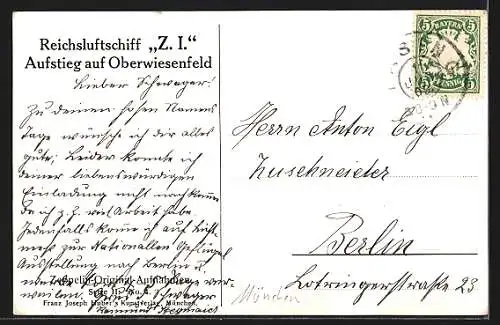 Reichsluftschiff „Z. I.“
Aufstieg auf Oberwiesenfeld
Lieber Schwager!
Zu deinem hohen Namens
Tage wünsche ich dir alles
gute; Leider konnte ich
deiner liebenswürdigen
Einladung nicht nachkomm
da ich z. Z. viel Arbeit habe
Jedenfalls komme ich auf
mehr zur Nationallen Geflügel
Ausstellung nach Berlin u.
Zeppelin-Original-Aufnahmen
Serie II. No. 4.
weilen. Gruß Schwager
Franz Joseph Huber's Kunstverlag, München.
BAYERN
5 5
PFENNIG
Herrn Anton Eigl
Zuschneider
Berlin
Lotringerstraße 23.
München